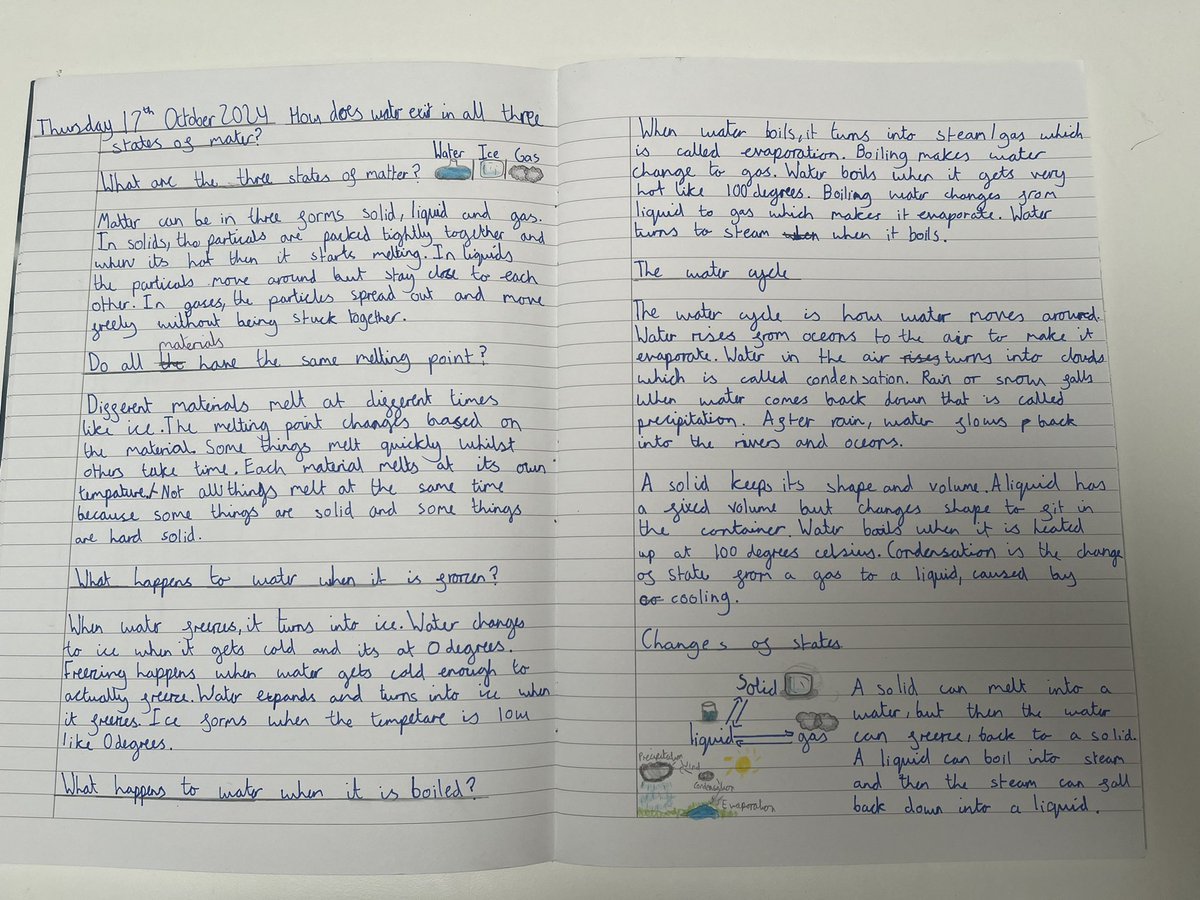 Thursday 17th October 2024 How does water exit in all three
states of mater?
What are the three states of matter?
Water Ice Gas
Matter can be in three forms solid, liquid and gas.
In solids, the particals are packed tightly together and
when its hot then it starts melting. In liquids
the particals move around but stay close to each
other. In gases, the particles spread out and move
freely without being stuck together.
materials
Do all the have the same melting point?
Different materials melt at different times
like ice. The melting point changes based on
the material. Some things melt quickly whilst
others take time. Each material melts at its own
tempature. Not all things melt at the same time
because some things are solid and some things
are hard solid.
What happens to water when it is frozen?
When water freezes, it turns into ice. Water changes
to ice when it gets cold and its at 0 degrees.
Freezing happens when water gets cold enough to
actually freeze. Water expands and turns into ice when
it freezes. Ice forms when the tempetare is low
like 0 degrees.
What happens to water when it is boiled?
When water boils, it turns into steam/gas which
is called evaporation. Boiling makes water
change to gas. Water boils when it gets very
hot like 100 degrees. Boiling water changes from
liquid to gas which makes it evaporate. Water
turns to steam when when it boils.
The water cycle
The water cycle is how water moves around.
Water rises from oceons to the air to make it
evaporate. Water in the air rises turns into clouds
which is called condensation. Rain or snow falls
when water comes back down that is called
precipitation. After rain, water flows p back
into the rivers and oceons.
A solid keeps its shape and volume. A liquid has
a fixed volume but changes shape to fit in
the container. Water boils when it is heated
up at 100 degrees celsius. Condensation is the change
of state from a gas to a liquid, caused by
co cooling.
Changes of states
Solid
liquid gas
Precipitation
Wind
Condensation
Evaporation
A solid can melt into a
water, but then the water
can freeze, back to a solid.
A liquid can boil into steam
and then the steam can fall
back down into a liquid.